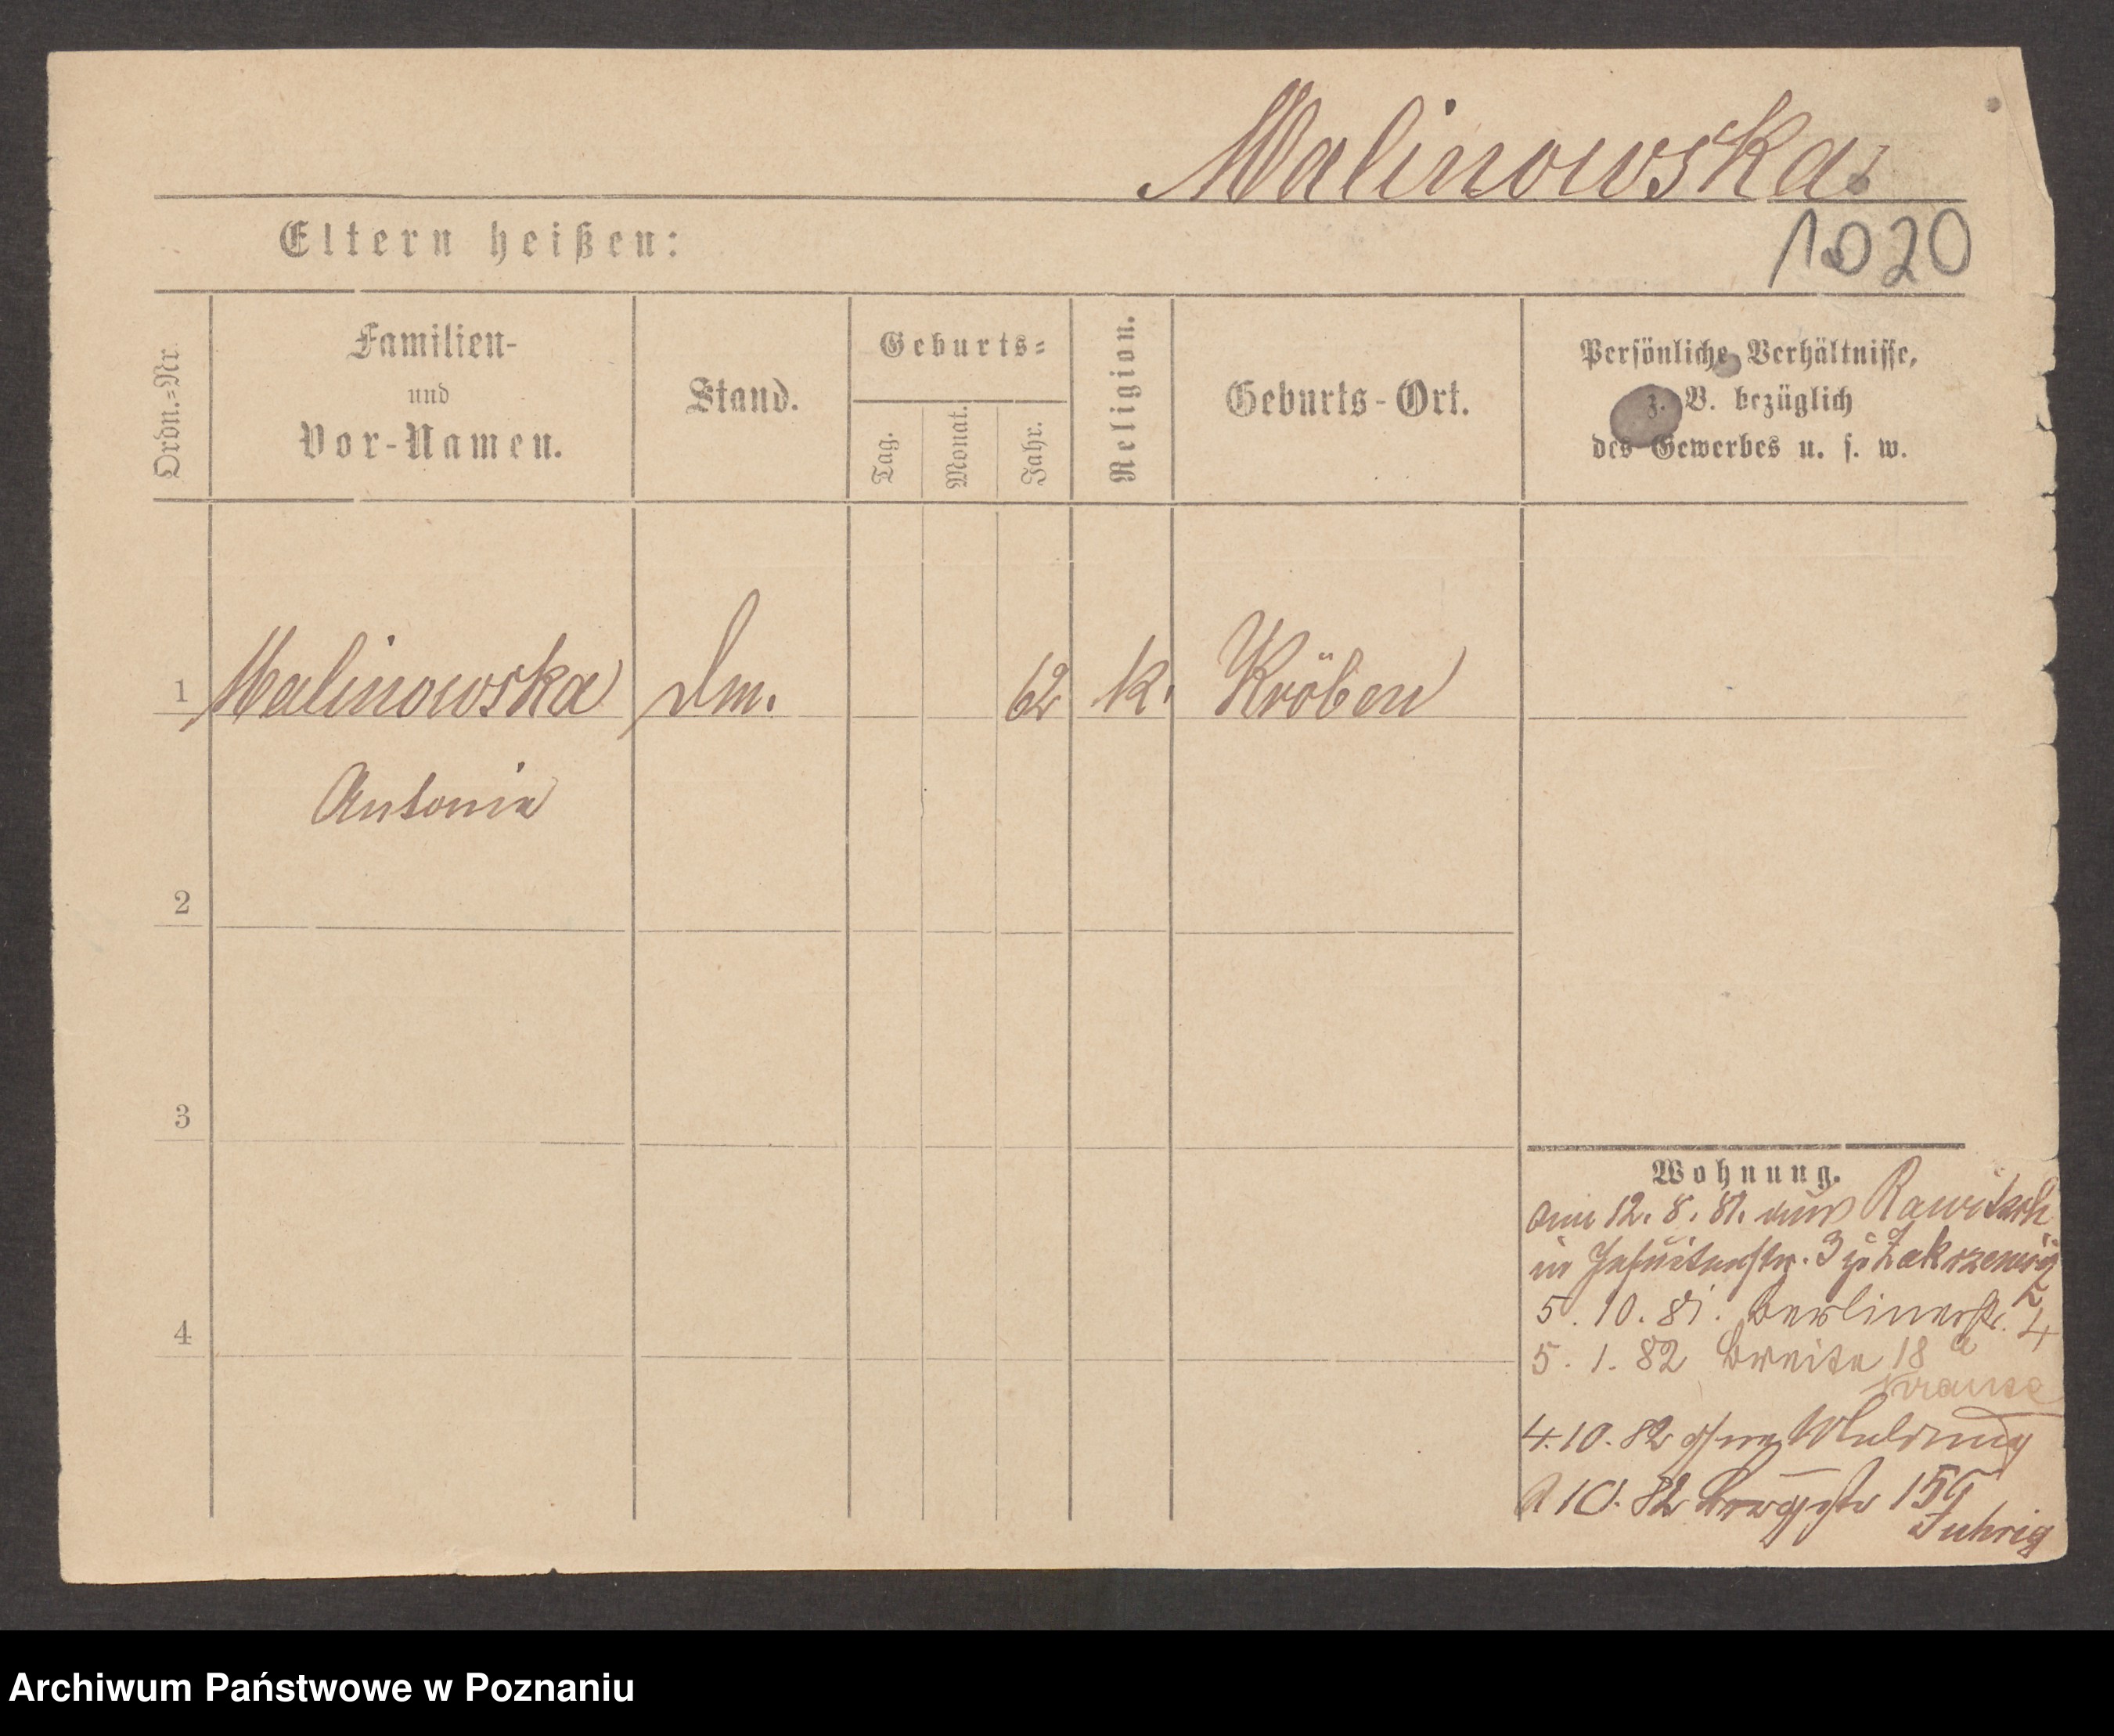 Malinowska.
1020
Eltern heißen:
Ordn.=Nr.
Familien-
und
Vor-Namen.
Stand.
Geburts=
Tag.
Monat.
Jahr.
Religion.
Geburts-Ort.
Persönliche Verhältnisse,
z. B. bezüglich
des Gewerbes u. s. w.
1 Malinowska Dm. 62 k. Kröben
Antonie
2
3
4
Wohnung.
am 12. 8. 81. aus Rawitsch
in Jesuitenstr. 3
5. 10. 81. Berlinerstr. 4
5. 1. 82 Breite 18 a
Krause
4. 10. 82 ohne Meldung
10. 82 Bergstr 15
Archiwum Państwowe w Poznaniu